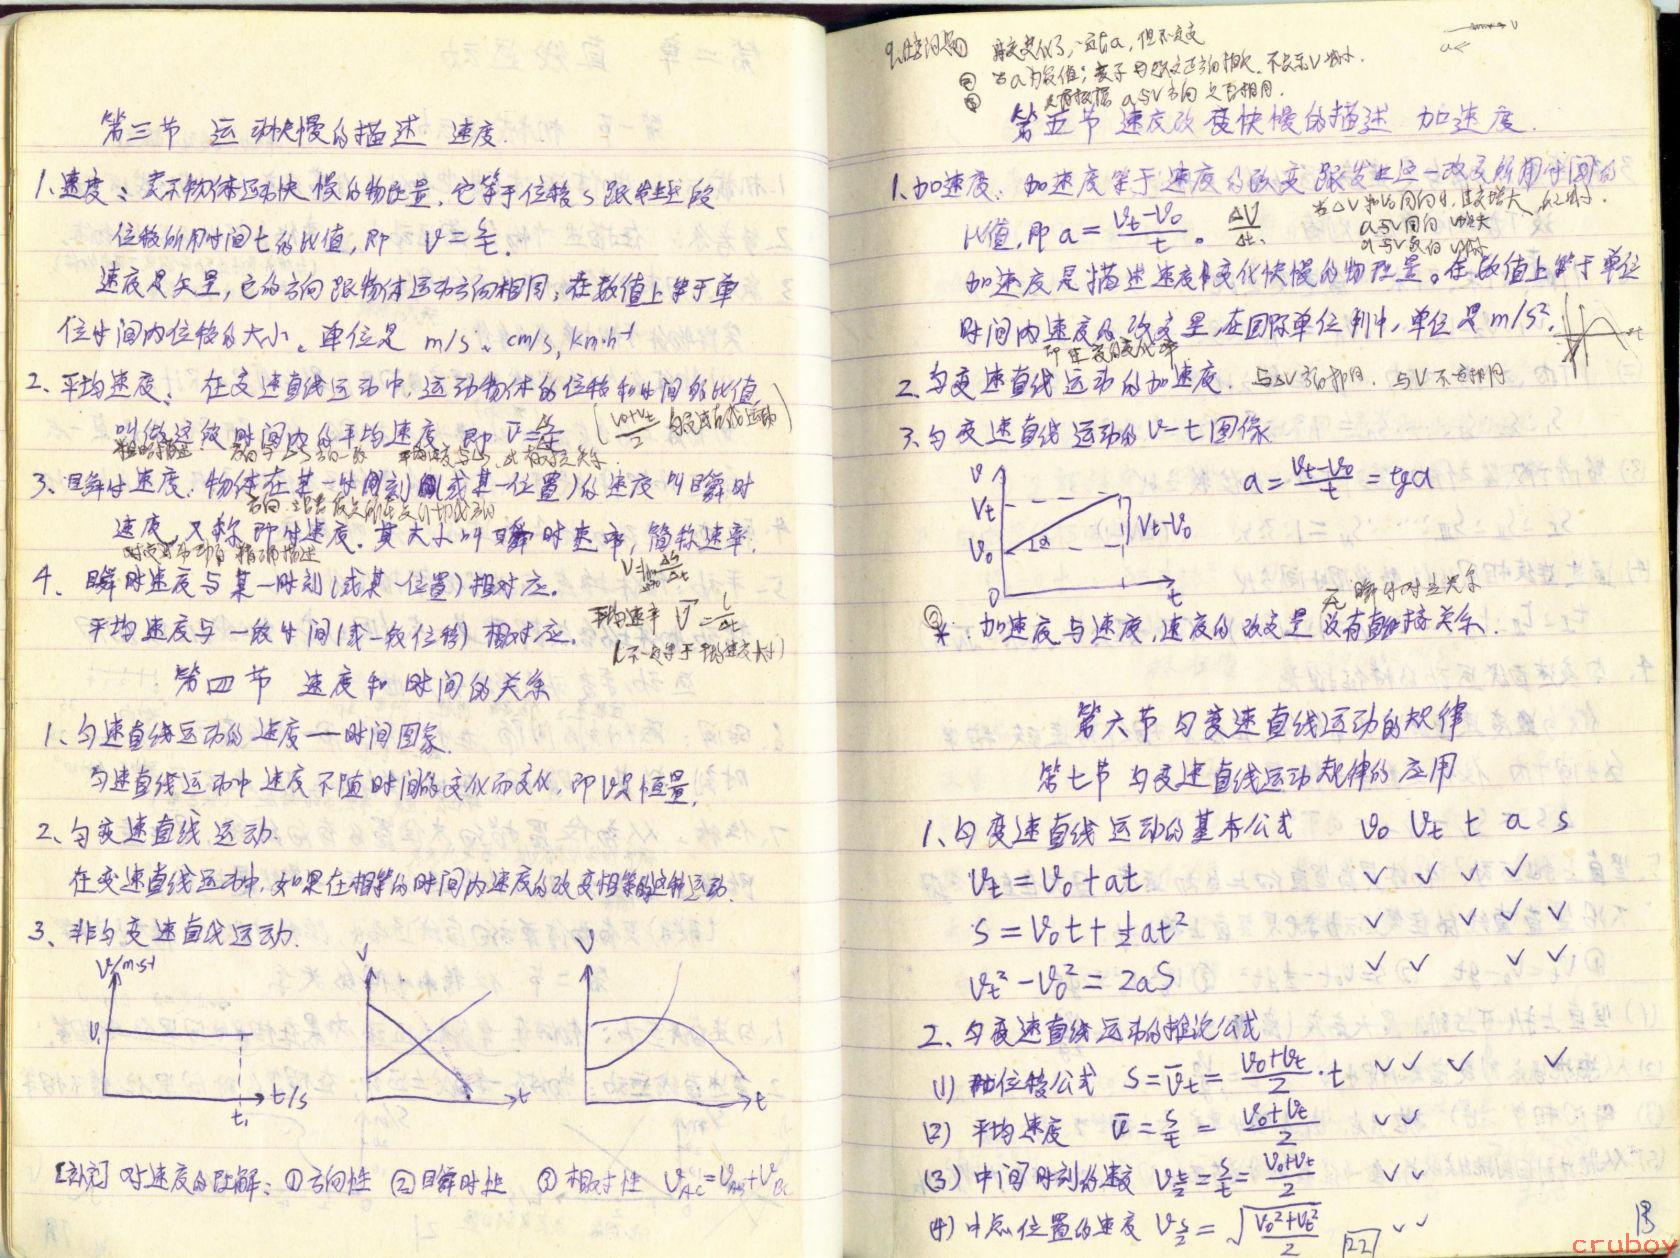 第三节 运动快慢的描述 速度.
1.速度:表示物体运动快慢的物理量.它等于位移s跟发生这段
位移所用时间t的比值,即 v=s/t.
速度是矢量,它的方向跟物体运动方向相同;在数值上等于单
位时间内位移的大小。单位是 m/s、cm/s, km·h⁻¹
2.平均速度:在变速直线运动中,运动物体的位移和时间的比值
叫做这段时间内的平均速度,即 v̄=Δs/Δt (v₀+vt/2 匀变速直线运动)
粗略描述 方向与Δs方向一致
3、瞬时速度:物体在某一时刻(或某一位置)的速度叫瞬时
速度,又称即时速度.其大小叫瞬时速率,简称速率.
对变速运动的精确描述 v=lim Δs/Δt
4、瞬时速度与某一时刻(或某一位置)相对应.
平均速度与一段时间(或一段位移)相对应.
平均速率 v̄=l/Δt
(不一定等于平均速度大小)
第四节 速度和时间的关系
1、匀速直线运动的速度——时间图象.
匀速直线运动中速度不随时间的变化而变化,即v是恒量.
2、匀变速直线运动.
在变速直线运动中,如果在相等的时间内速度的改变相等的这种运动.
3、非匀变速直线运动.
v/m·s⁻¹ v₁ t₁ t/s
v t
v t
[补充] 对速度的理解:①方向性 ②瞬时性 ③相对性 vAC=vAB+vBC
a v
①
② 当a为负值;表示与规定正方向相反.不表示v减小.
③ 只有根据a与v方向是否相同.
第五节 速度改变快慢的描述 加速度.
1.加速度:加速度等于速度的改变跟发生这一改变所用时间的
比值,即 a=vt-v₀/t。 ΔV/Δt.
a与v同向 v增大
a与v反向 v减小
加速度是描述速度变化快慢的物理量。在数值上等于单位
时间内速度的改变量,在国际单位制中,单位是m/s².
即速度的变化率
2.匀变速直线运动的加速度. 与ΔV方向相同.与V不一定相同
3.匀变速直线运动的v-t图像
v vt v₀ 0 α vt-v₀ t
a=vt-v₀/t=tgα
无瞬时对应关系
加速度与速度,速度的改变量没有直接关系.
第六节 匀变速直线运动的规律
第七节 匀变速直线运动规律的应用
1、匀变速直线运动的基本公式 v₀ vt t a s
vt=v₀+at ✓ ✓ ✓ ✓
s=v₀t+½at² ✓ ✓ ✓ ✓
vt²-v₀²=2as ✓ ✓ ✓ ✓
2、匀变速直线运动的推论公式
(1) 位移公式 s=v̄t=v₀+vt/2·t ✓ ✓ ✓ ✓
(2) 平均速度 v̄=s/t=v₀+vt/2 ✓ ✓
(3) 中间时刻的速度 vt/2=s/t=v₀+vt/2 ✓ ✓
(4) 中点位置的速度 vs/2=√(v₀²+vt²/2) P22 ✓ ✓
13
crubox